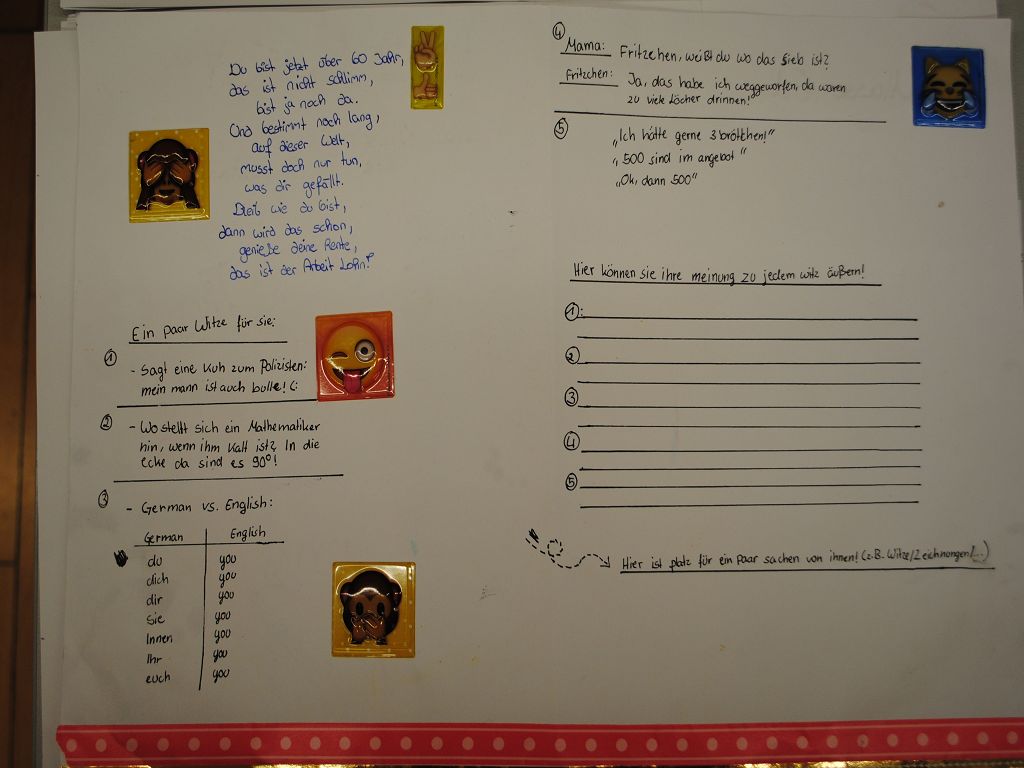 Du bist jetzt über 60 Jahr,
das ist nicht schlimm,
bist ja noch da.
Und bestimmt noch lang,
auf dieser Welt,
musst doch nur tun,
was dir gefällt.
Bleib wie du bist,
dann wird das schon,
genieße deine Rente,
das ist der Arbeit Lohn!
Ein paar Witze für sie:
1
- Sagt eine Kuh zum Polizisten:
mein mann ist auch bulle! (:
2
- Wo stellt sich ein Mathematiker
hin, wenn ihm kalt ist? In die
ecke da sind es 90°!
3
- German vs. English:
German English
du you
dich you
dir you
Sie you
Innen you
Ihr you
euch you
4
Mama: Fritzchen, weißt du wo das Sieb ist?
Fritzchen: Ja, das habe ich weggeworfen, da waren
zu viele Löcher drinnen!
5
„Ich hätte gerne 3 brötchen!"
„500 sind im angebot"
„Ok, dann 500"
Hier können sie ihre meinung zu jedem witz äußern!
1:
2
3
4
5
Hier ist platz für ein paar sachen von ihnen! (z.B. Witze/Zeichnungen/...)